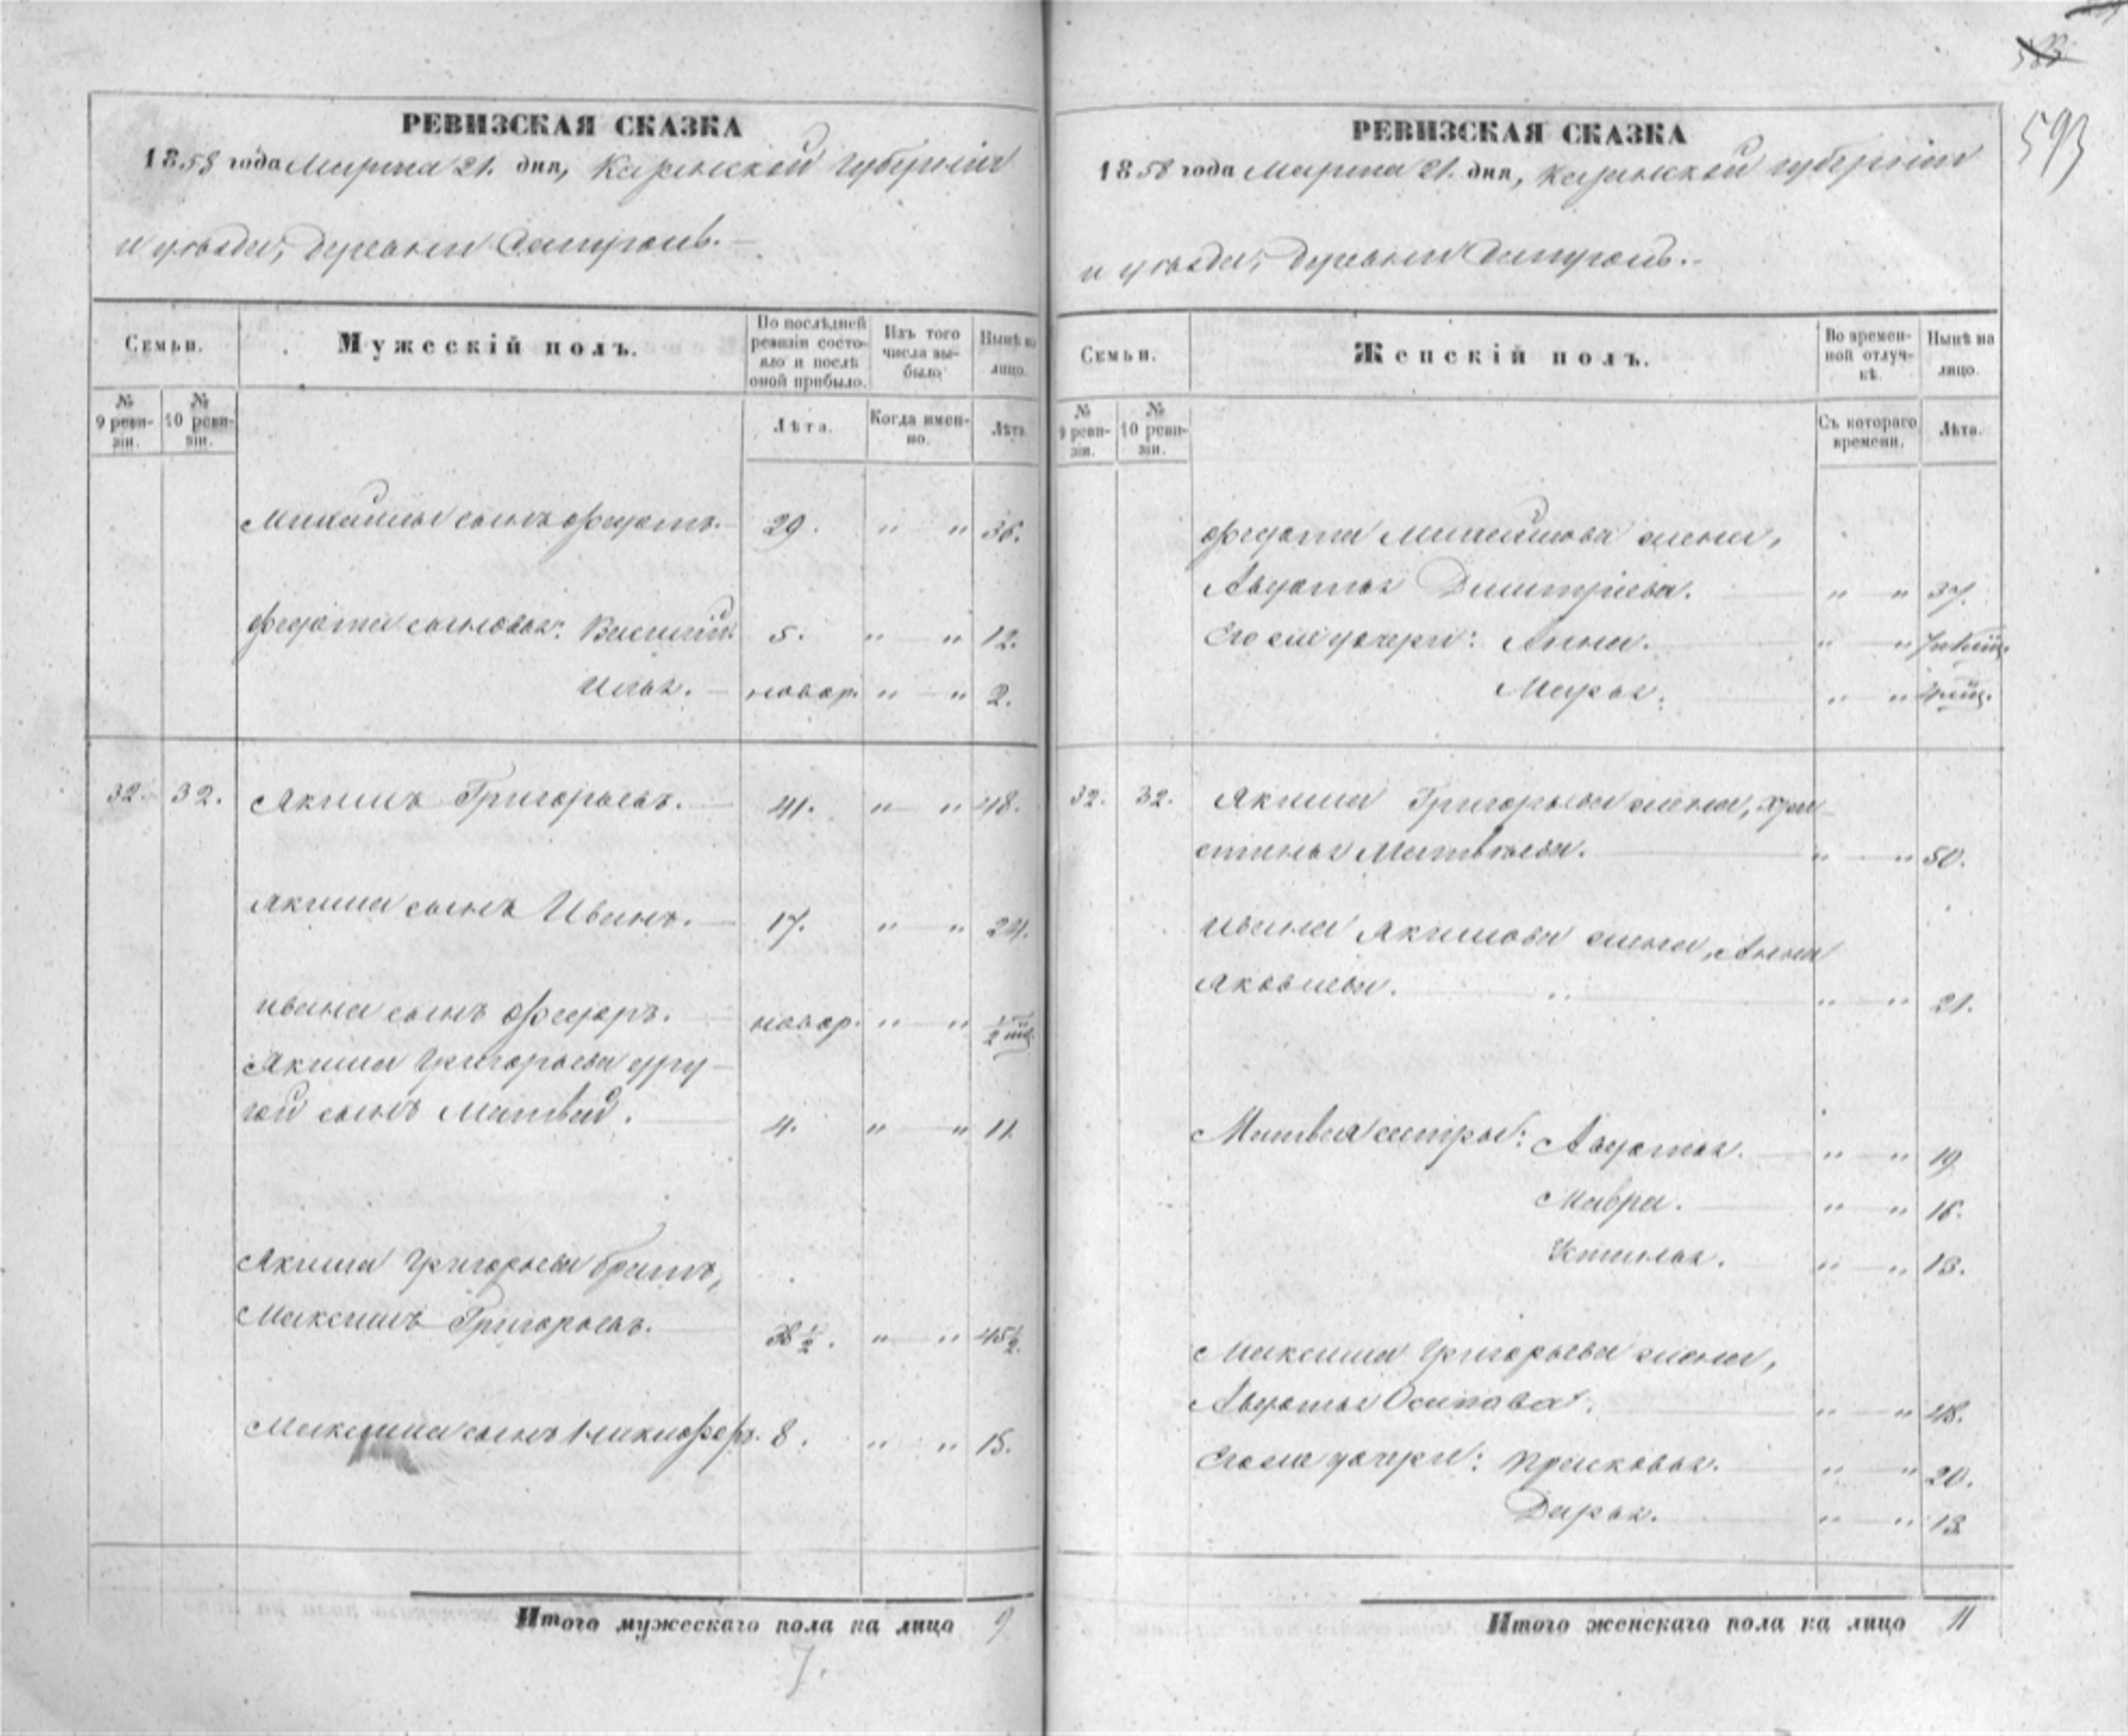 РЕВИЗСКАЯ СКАЗКА
1858 года Марта 21. дня, Казанской губернiи
и уѣзда, деревни
Семьи.
Мужескiй полъ.
По послѣдней ревизiи состояло и послѣ оной прибыло.
Изъ того числа выбыло.
Нынѣ на лицо.
№ 9 ревизiи.
№ 10 ревизiи.
Лѣта.
Когда именно.
Лѣта.
Михайлы сынъ Федотъ. 29. " " 36.
Федота сыновья: Василiй. 5. " " 12.
Илья. новор. " " 2.
32. 32. Якимъ Григорьевъ. 41. " " 48.
Якима сынъ Иванъ. 17. " " 24.
Ивана сынъ Федоръ. новор. " " 1/2
Якима Григорьева дру-
гой сынъ Матвей. 4. " " 11.
Якима Григорьева братъ,
Максимъ Григорьевъ. 38 1/2. " " 45 1/2.
Максима сынъ Никифоръ. 8. " " 15.
Итого мужескаго пола на лицо 9
7.
583
593
РЕВИЗСКАЯ СКАЗКА
1858 года Марта 21. дня, Казанской губернiи
и уѣзда, деревни
Семьи.
Женскiй полъ.
Во временной отлучкѣ.
Нынѣ на лицо.
№ 9 ревизiи.
№ 10 ревизiи.
Съ котораго времени.
Лѣта.
Федота Михайлова жена,
Авдотья Дмитрiева. " " 37.
Его же дочери: Анна. " "
Марья. " "
32. 32. Якима Григорьева жена, Хри-
стинья Матвѣева. " " 50.
Ивана Якимова жена, Анна
Яковлева. " " 21.
Матвея сестры: Авдотья. " " 19
Мавра. " " 16.
Устинья. " " 13.
Максима Григорьева жена,
Авдотья Осипова. " " 48.
Его же дочери: Прасковья. " " 20.
Дарья. " " 13
Итого женскаго пола на лицо 11